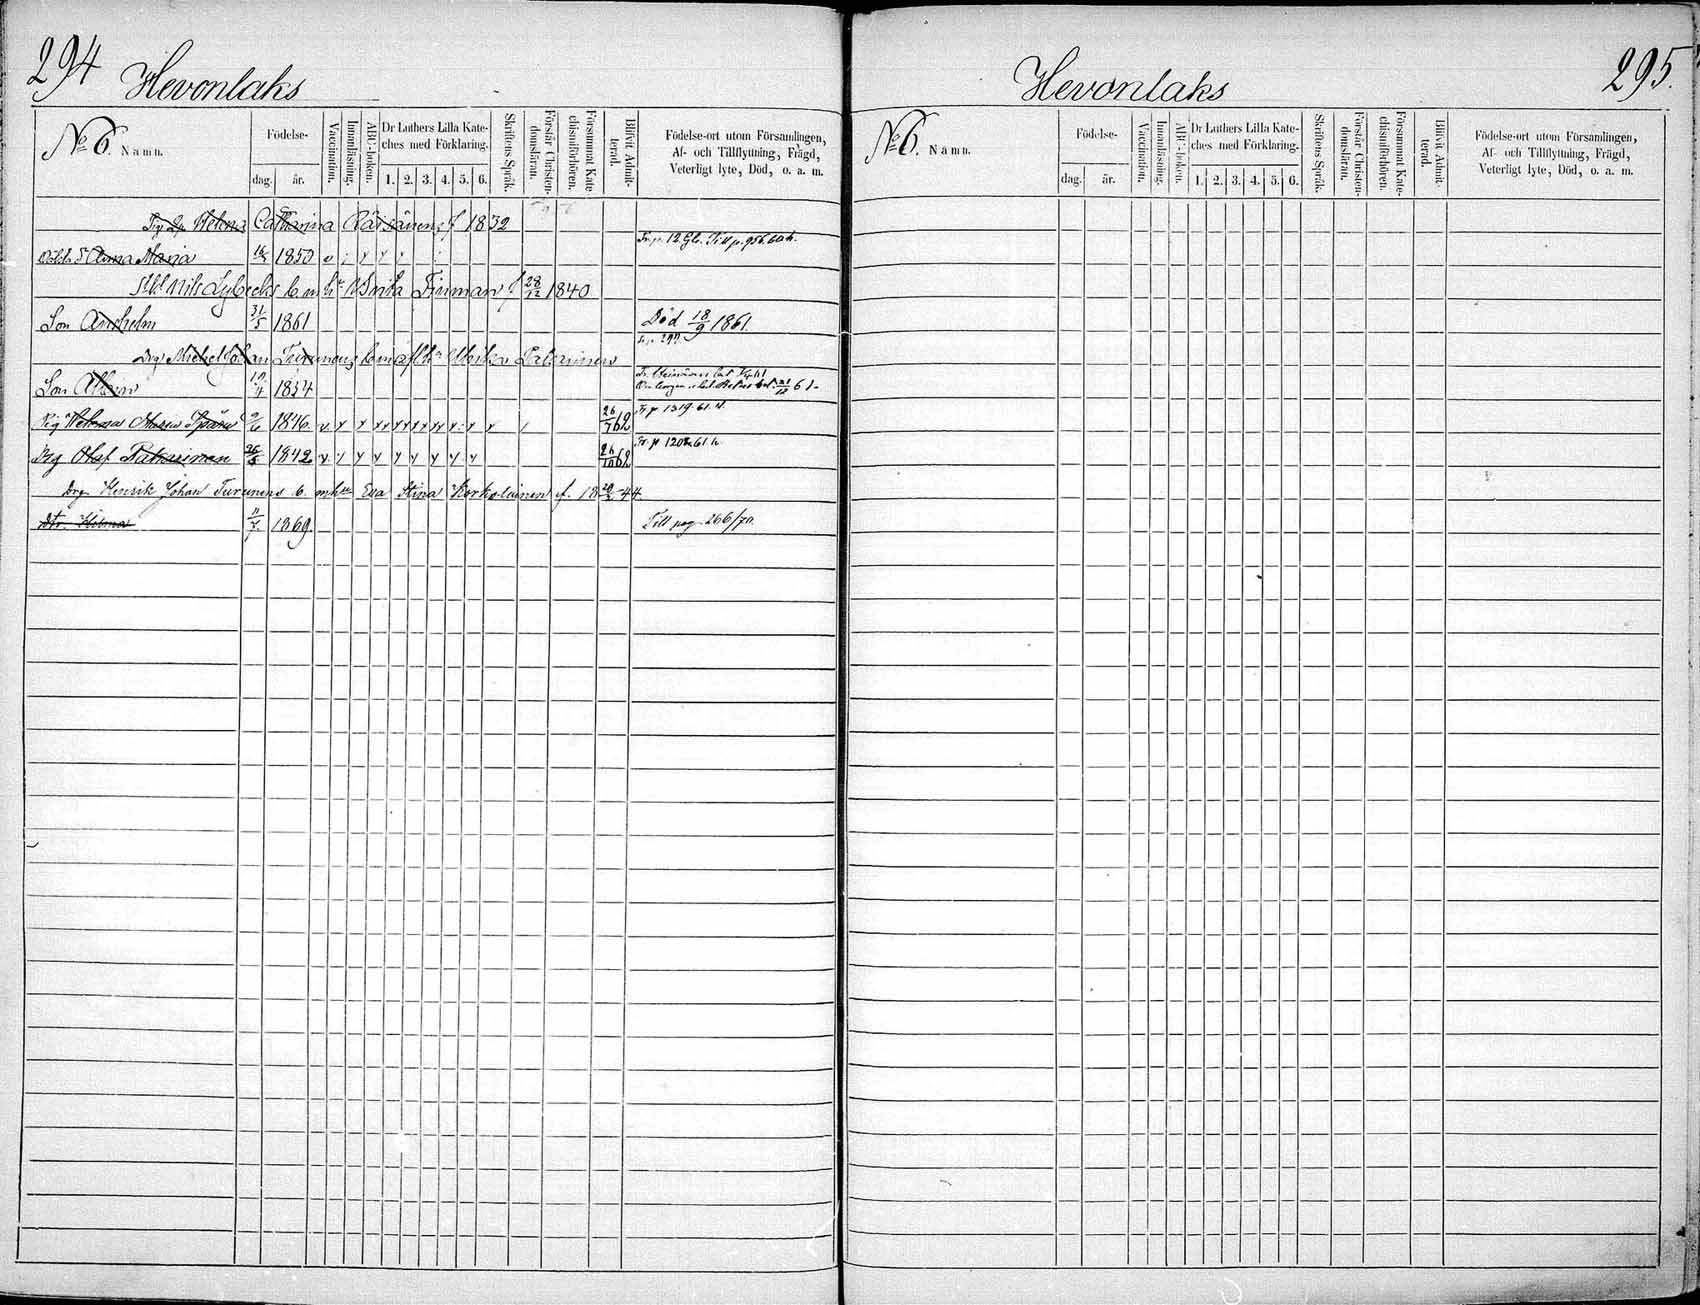 294 Hevonlaks
No 6. Namn.
Födelse-
dag. år.
Vaccination.
Innanläsning.
ABC-boken.
Dr Luthers Lilla Kate-
ches med Förklaring.
1. 2. 3. 4. 5. 6.
Skriftens Språk.
Förstår Christen-
domsläran.
Försummat Kate
chismiförhören.
Blifvit Admit-
terad.
Födelse-ort utom Församlingen,
Af- och Tillflyttning, Frägd,
Veterligt lyte, Död, o. a. m.
Catharina Räisänens f 1832
Anna Maria 1850 Till p. 956.60 h.
Nils Lybecks b. m. h. Brita Finman f 28/12 1840
Son Anshelm 31/5 1861 Död 18/9 1861.
Drg. Michel Johan Turunens Ulrika Pakarinen
Son 1854
Pig Helena Maria 1846. 26/7 62 Fr. p 1319.61.
Drg Olof Pakarinen 1842 26/10 62 Fr. p 61 h.
Drg. Henrik Johan Turunens b. m. h. Eva Stina Korkolainen f. 18 44.
Dtr. Hilma 11/7. 1869. Till pag. 266/70.
Hevonlaks 295.
No 6. Namn.
Födelse-
dag. år.
Vaccination.
Innanläsning.
ABC-boken.
Dr Luthers Lilla Kate-
ches med Förklaring.
1. 2. 3. 4. 5. 6.
Skriftens Språk.
Förstår Christen-
domsläran.
Försummat Kate
chismiförhören.
Blifvit Admit-
terad.
Födelse-ort utom Församlingen,
Af- och Tillflyttning, Frägd,
Veterligt lyte, Död, o. a. m.